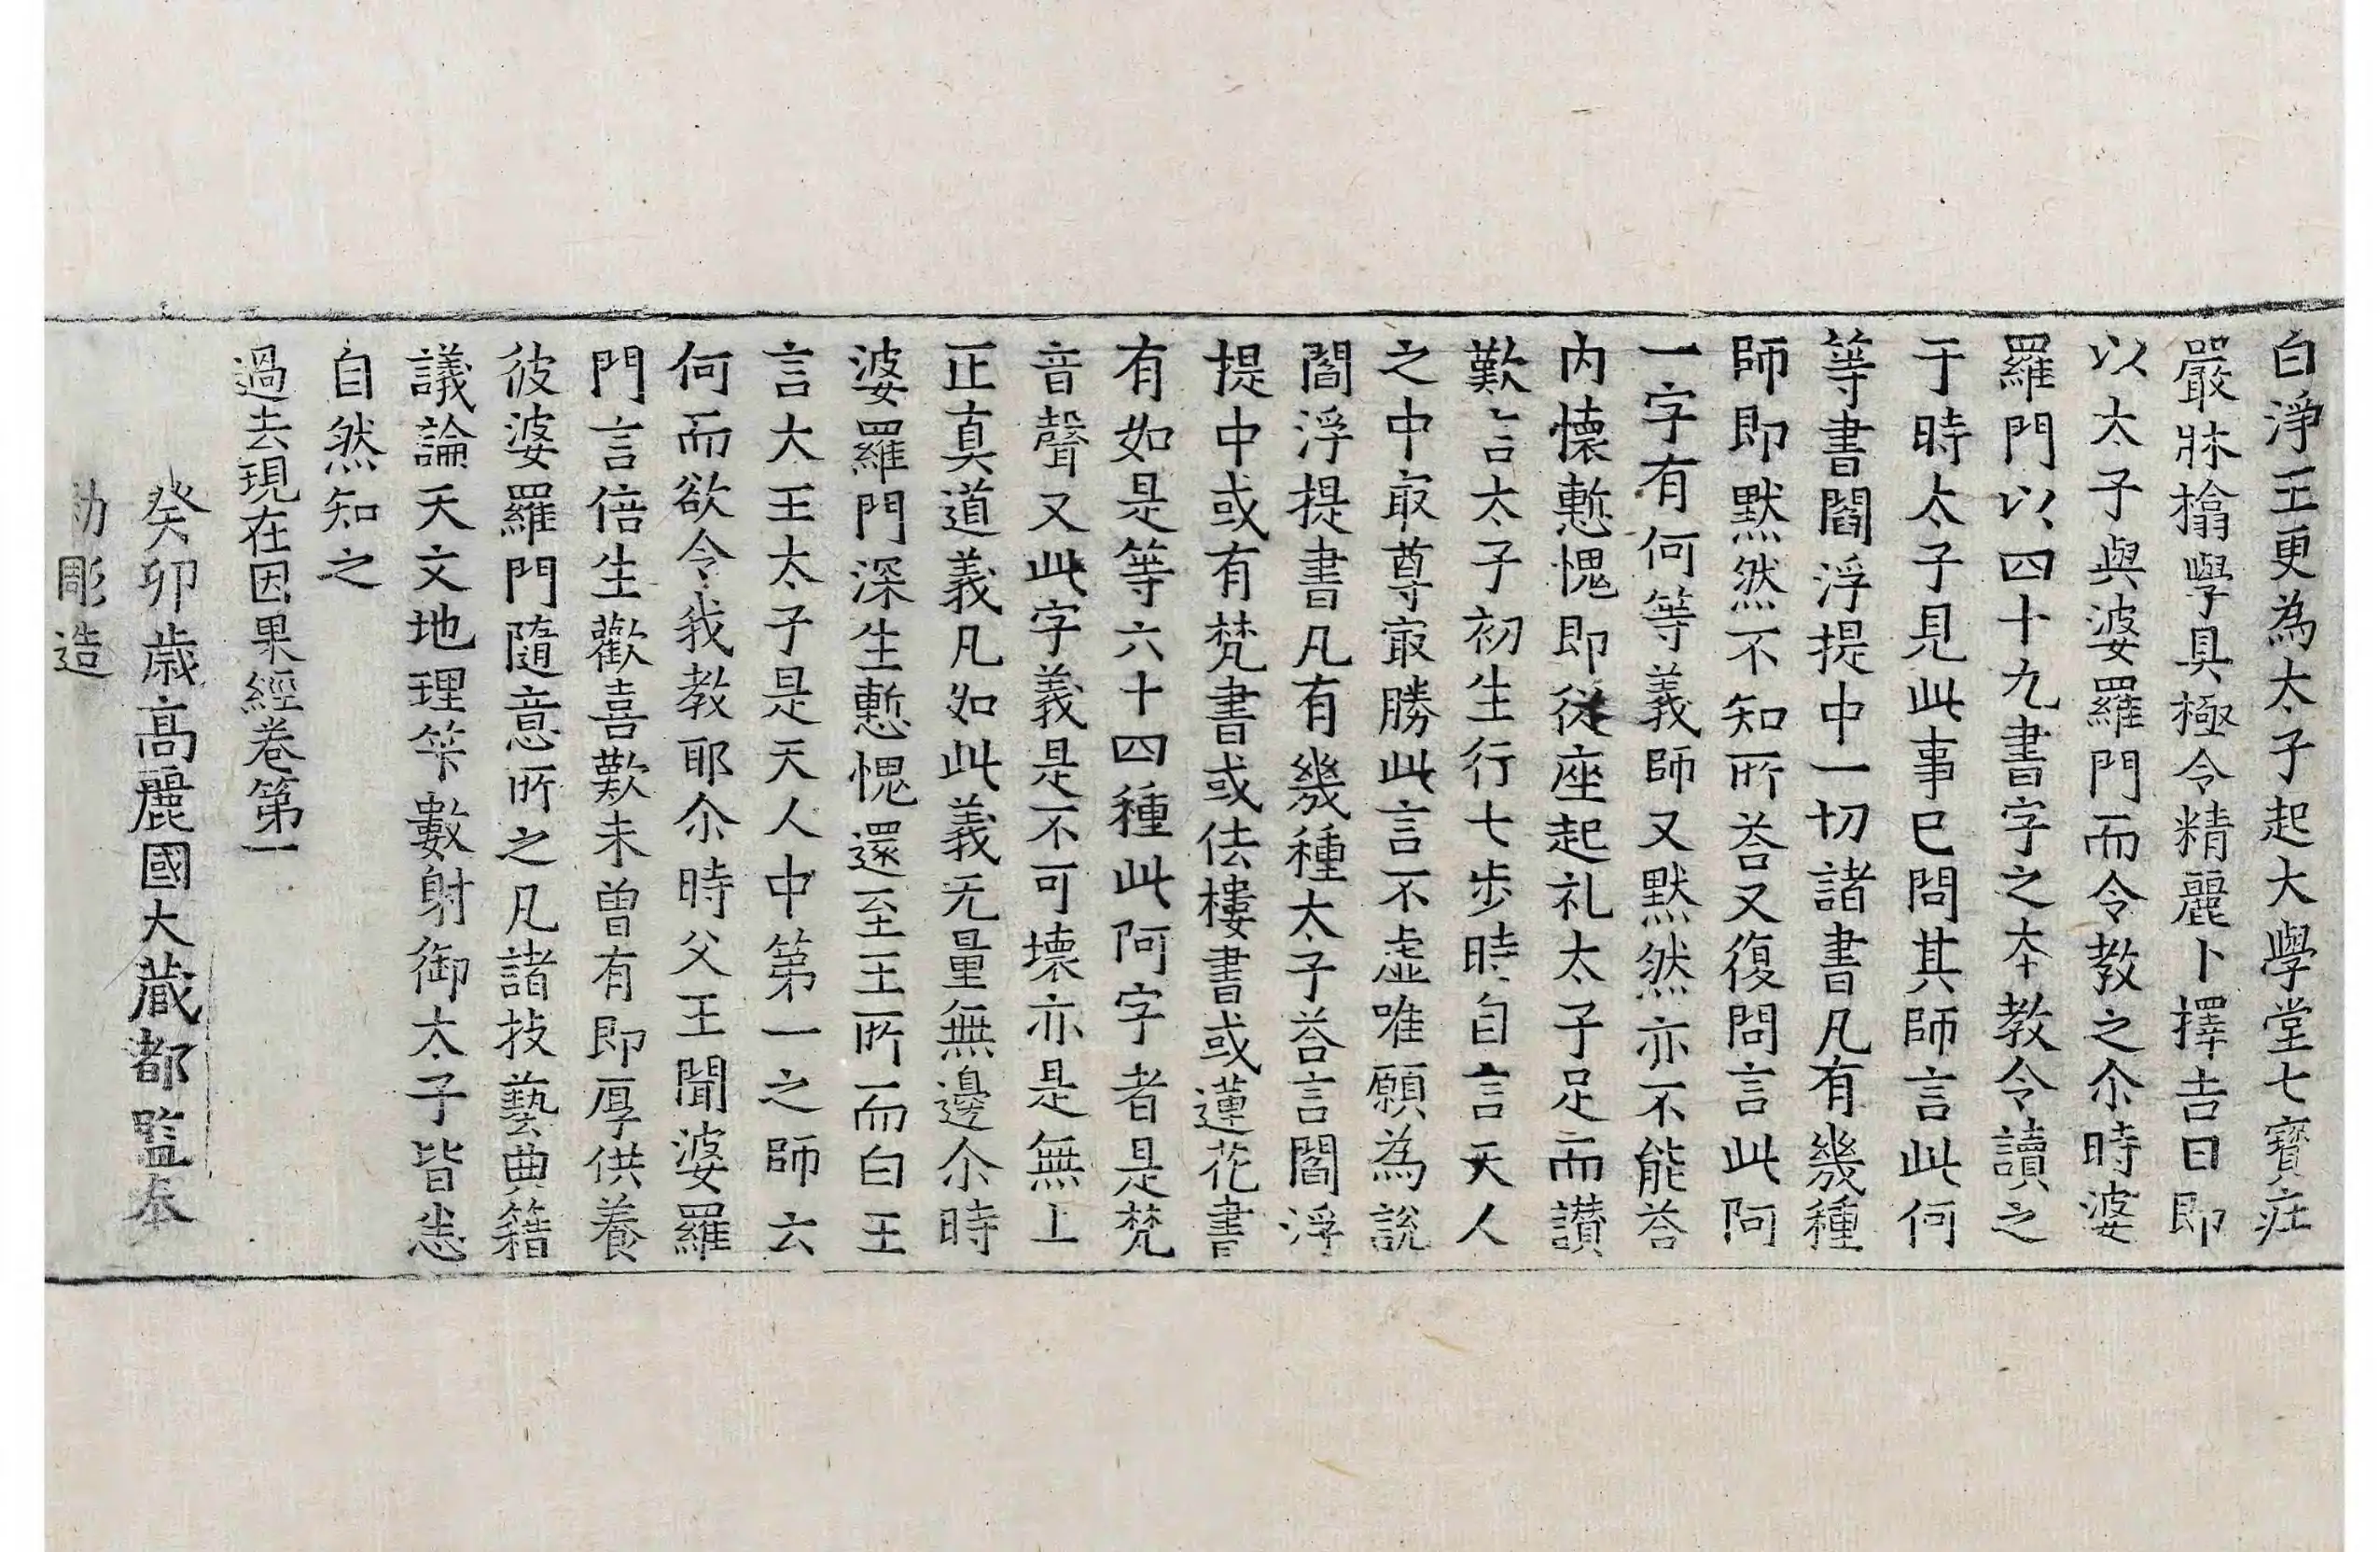 白淨王更為太子起大學堂七寶㽵
嚴牀㯓學具極令精麗卜擇吉日即
以太子與婆羅門而令教之尒時婆
羅門以四十九書字之夲教令讀之
于時太子見此事已問其師言此何
等書閻浮提中一切諸書凡有幾種
師即默然不知所荅又復問言此阿
一字有何等義師又默然亦不能荅
內懷慙愧即從座起礼太子足而讃
歎〻言太子初生行七步時自言天人
之中㝡尊㝡勝此言不虛唯願為說
閻浮提書凡有幾種太子荅言閻浮
提中或有梵書或佉樓書或蓮花書
有如是等六十四種此阿字者是梵
音聲又此字義是不可壞亦是無上
正真道義凡如此義无量無邊尒時
婆羅門深生慙愧還至王所而白王
言大王太子是天人中第一之師云
何而欲令我教耶尒時父王聞婆羅
門言倍生歡喜歎未曾有即厚供養
彼婆羅門隨意所之凡諸技藝典籍
議論天文地理筭數射御太子皆悉
自然知之
過去現在因果經卷第一
癸卯歲高麗國大藏都監奉
勅彫造